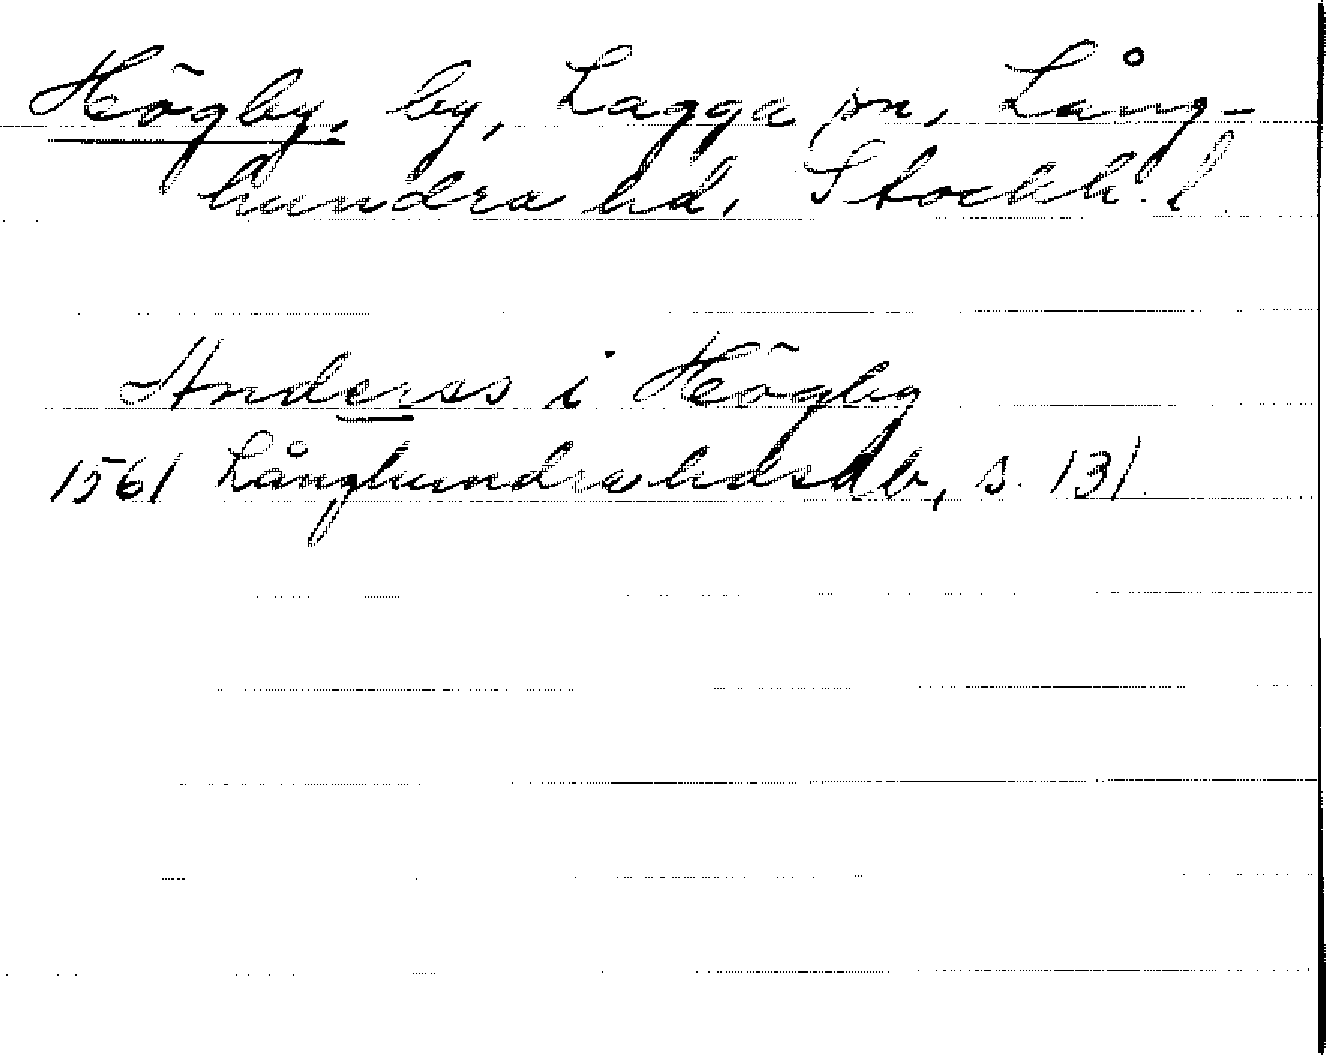 Högby, by, Lagga sn, Lång-
hundra hd, Stockh. l.
Anderss i Högby
1561 Långhundrahdsdb, s. 131.